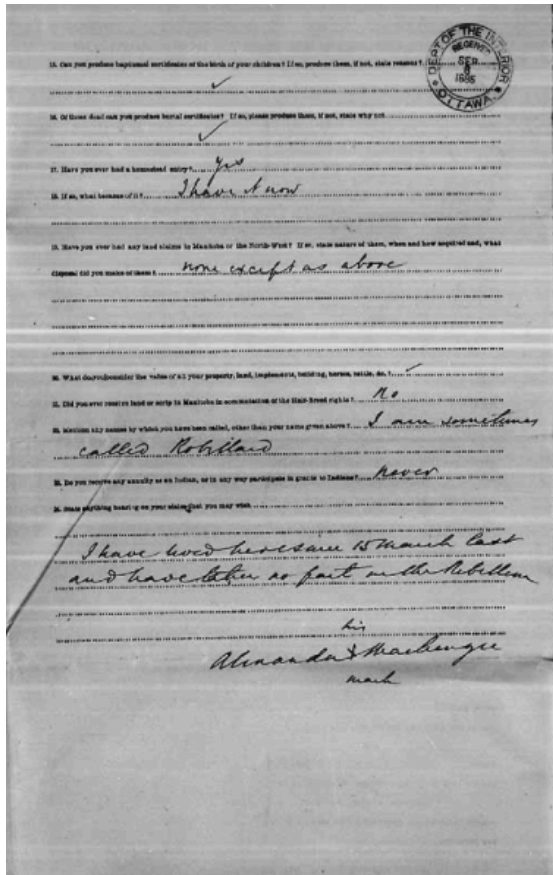 DEPT OF THE INTERIOR
RECEIVED
SEP
8
1885
OTTAWA
15. Can you produce baptismal certificates of the birth of your children? If so, produce them, if not, state reasons?
✓
16. Of those dead can you produce burial certificates? If so, please produce them, if not, state why not
✓
17. Have you ever had a homestead entry? Yes
18. If so, what became of it? I have it now
19. Have you ever had any land claims in Manitoba or the North-West? If so, state nature of them, when and how acquired and, what
disposal did you make of them? none except as above
20. What do you consider the value of all your property, land, implements, building, horses, cattle, &c.? ✓
21. Did you ever receive land or scrip in Manitoba in commutation of the Half-Breed rights? No
22. Mention any names by which you have been called, other than your name given above? I am sometimes
called Robillard
23. Do you receive any annuity as an Indian, or in any way participate in grants to Indians? never
24. State anything bearing on your claim that you may wish
I have lived here since 15 March last
and have taken no part in the Rebellion
his
Alexander X MacKenzie
mark